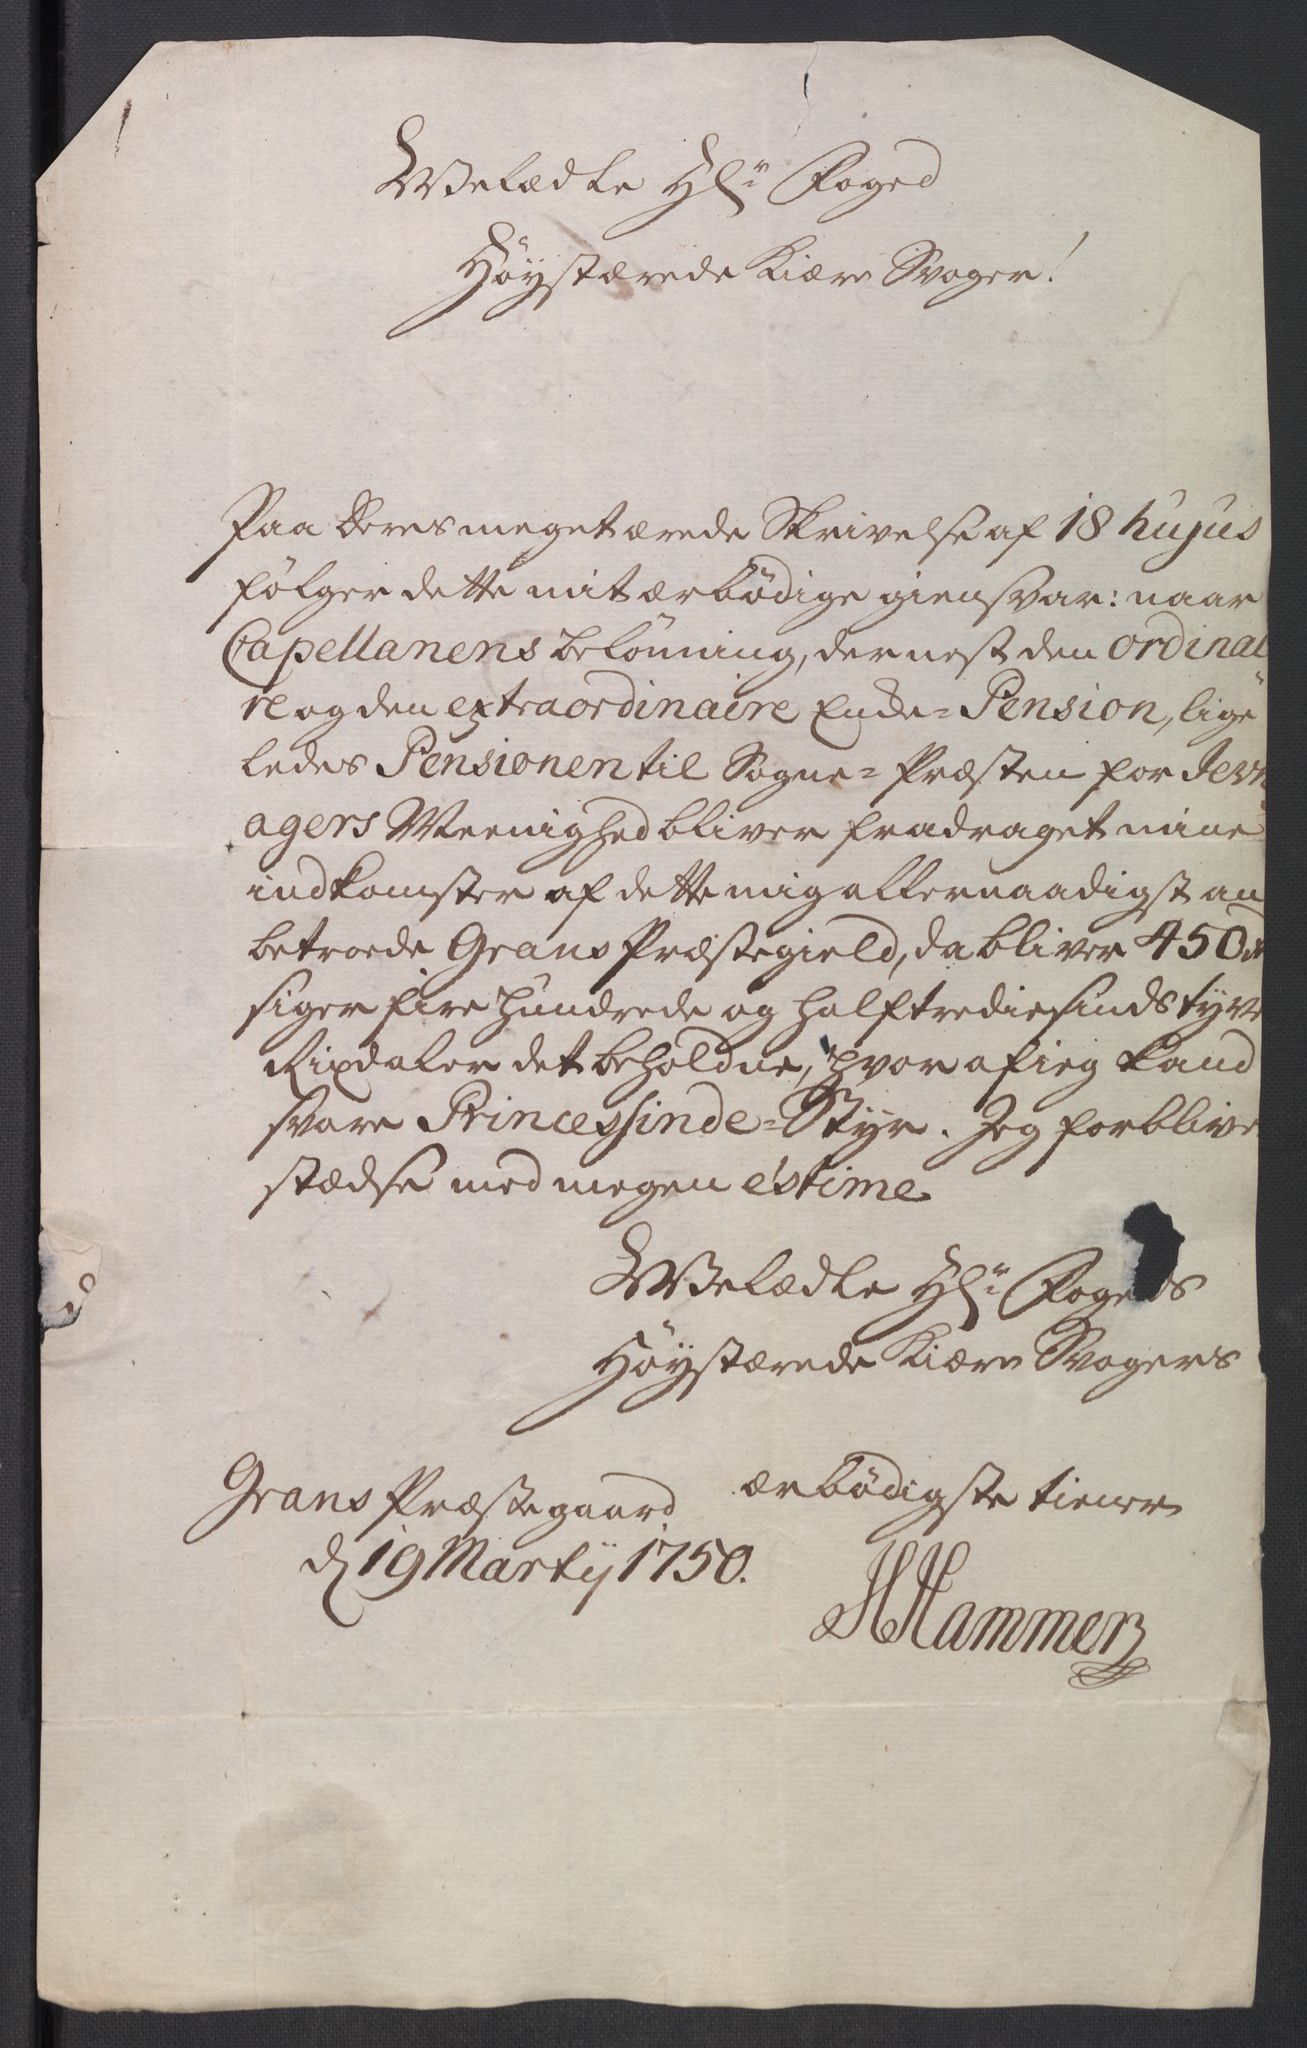 Welædle Hr Foged
Höystærede Kiære Svoger!
Paa Deres meget ærede Skrivelse af 18 hujus
fölger dette mit ærbödige giensvar: naar
Capellanens belönning, dernest den ordinai
re og den extraordinaire Enke-Pension, lige
ledes Pensionen til Sogne-Præsten for Jevn
agers Meenighed bliver fradraget mine
indkomster af dette mig allernaadigst an
betroede Grans Præstegield, da bliver 450 rd
siger fire hundrede og halftrediesinds tyve
Rixdaler det beholdne, hvoraf ieg kand
svare Princessinde-Styr. Jeg forblive
stædse med megen estime
Welædle Hr Fogeds
Höystærede Kiære Svogers
ærbödigste tienere
Grans Præstegaard
d 19 Martij 1750.
HHammer